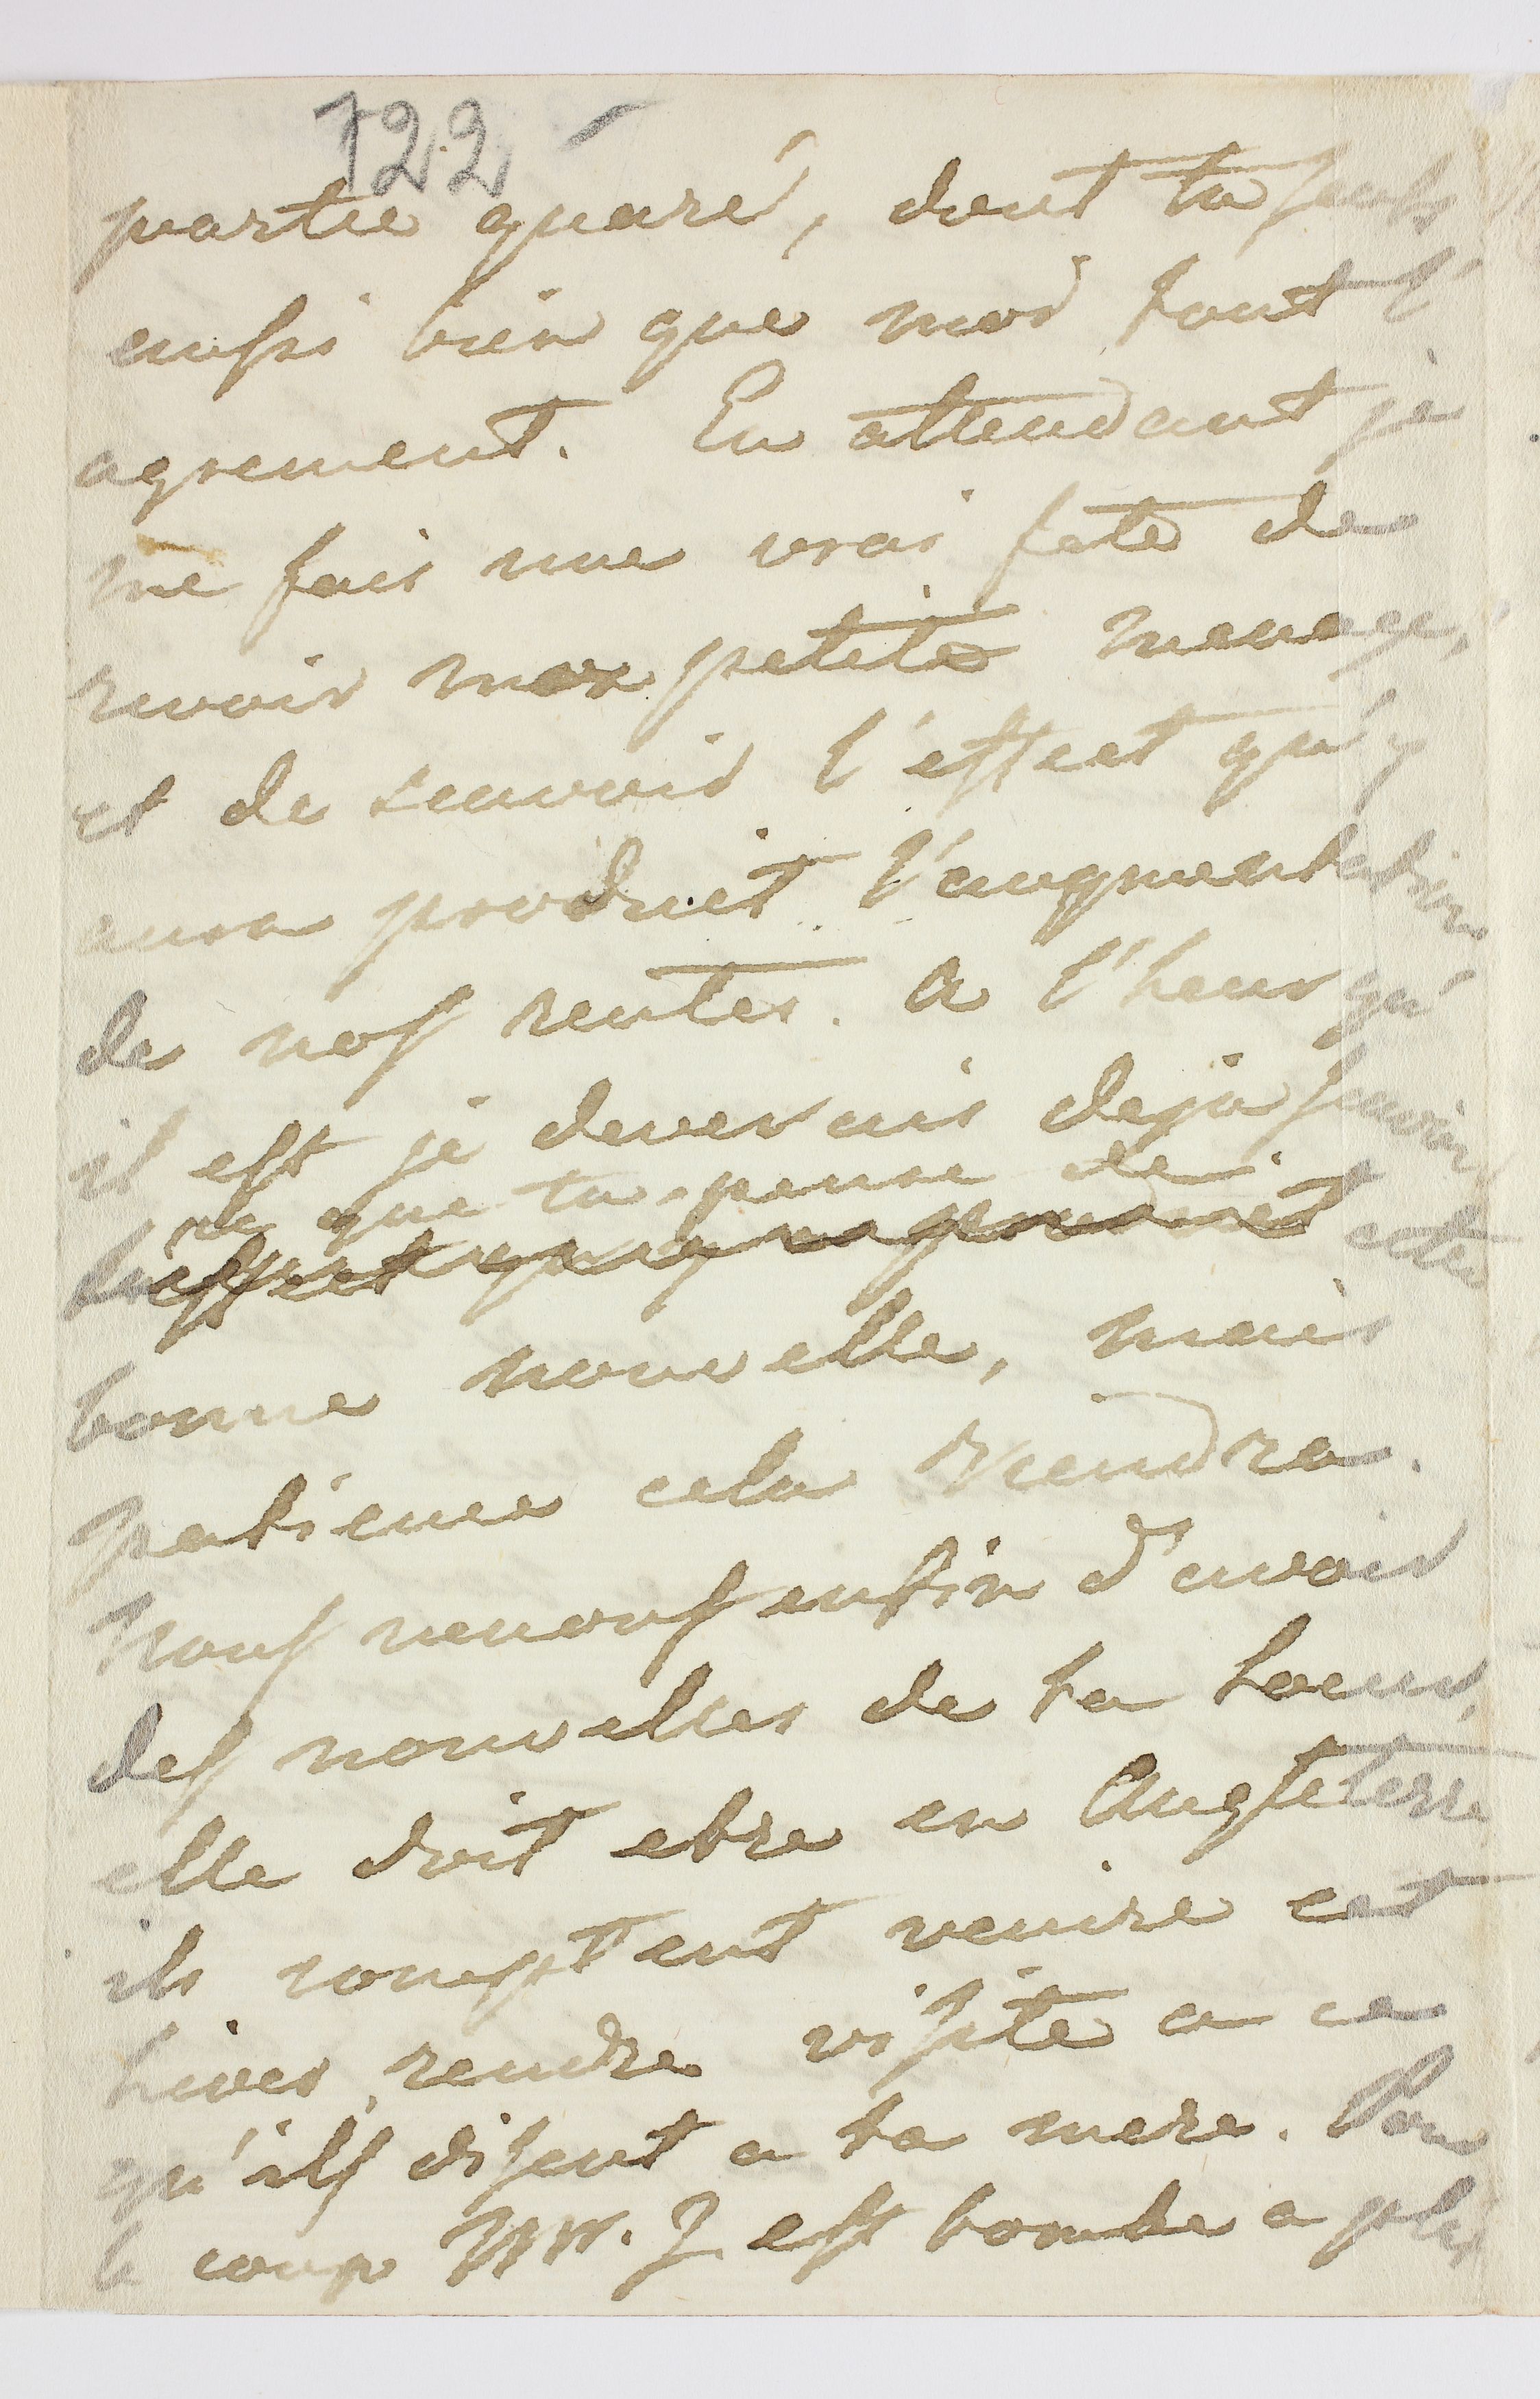 122
partie quaré, dont tu sens
aussi bien que moi tout l'
agrement. En attendant je
me fais une vrai fete de
revoir mon petite menage,
et de scavoir l'effect qu'y
aura produit l'augmentation
de nos rentes. a l'heur qu'
il est je deverais deja scavoir
ce que tu pense de
effect qu'y a produit cette
bonne nouvelle, mais
patience cela viendra.
Nous venons enfin d'avoir
des nouvelles de ta soeur,
elle doit etre en Angleterre
ils comptent venire cet
hiver rendre visite a ce
qu'ils disent a ta mere. Pour
le coup Mr. J. est tombé a plat